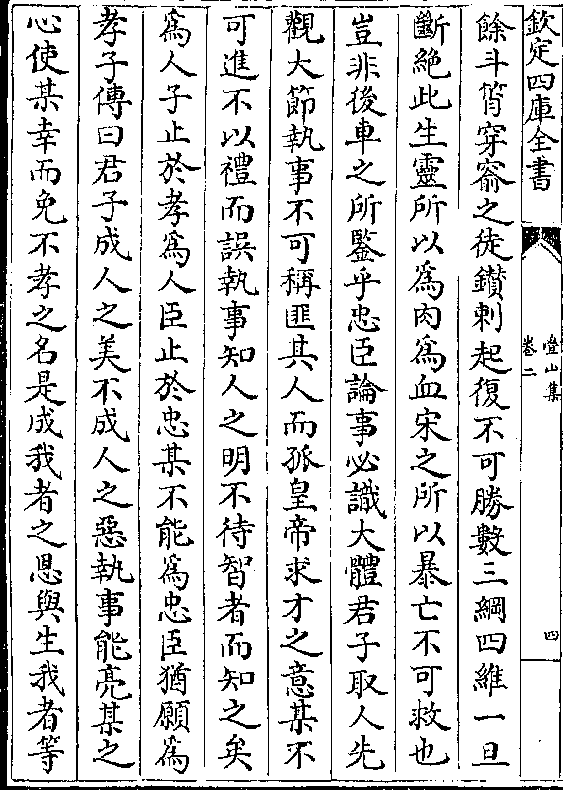 欽定四庫全書
疊山集
卷二
四
餘斗筲穿窬之徒鑚刺起復不可勝數三綱四維一旦
斷絶此生靈所以為肉為血宋之所以暴亡不可救也
豈非後車之所鑒乎忠臣論事必識大體君子取人先
觀大節執事不可稱匪其人而孤皇帝求才之意某不
可進不以禮而誤執事知人之明不待智者而知之矣
為人子止於孝為人臣止於忠某不能為忠臣猶願為
孝子傳曰君子成人之美不成人之惡執事能亮某之
心使某幸而免不孝之名是成我者之恩與生我者等